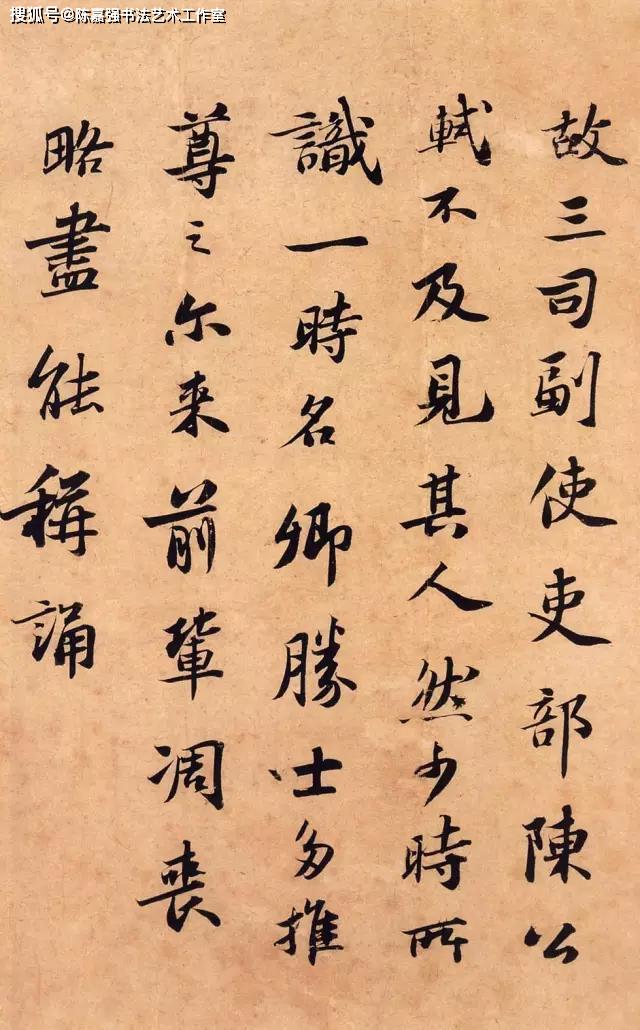 搜狐号@陈嘉强书法艺术工作室
故三司副使吏部陳公
軾不及見其人然少時所
識一時名卿勝士多推
尊之尓来前輩凋喪
略盡能稱誦